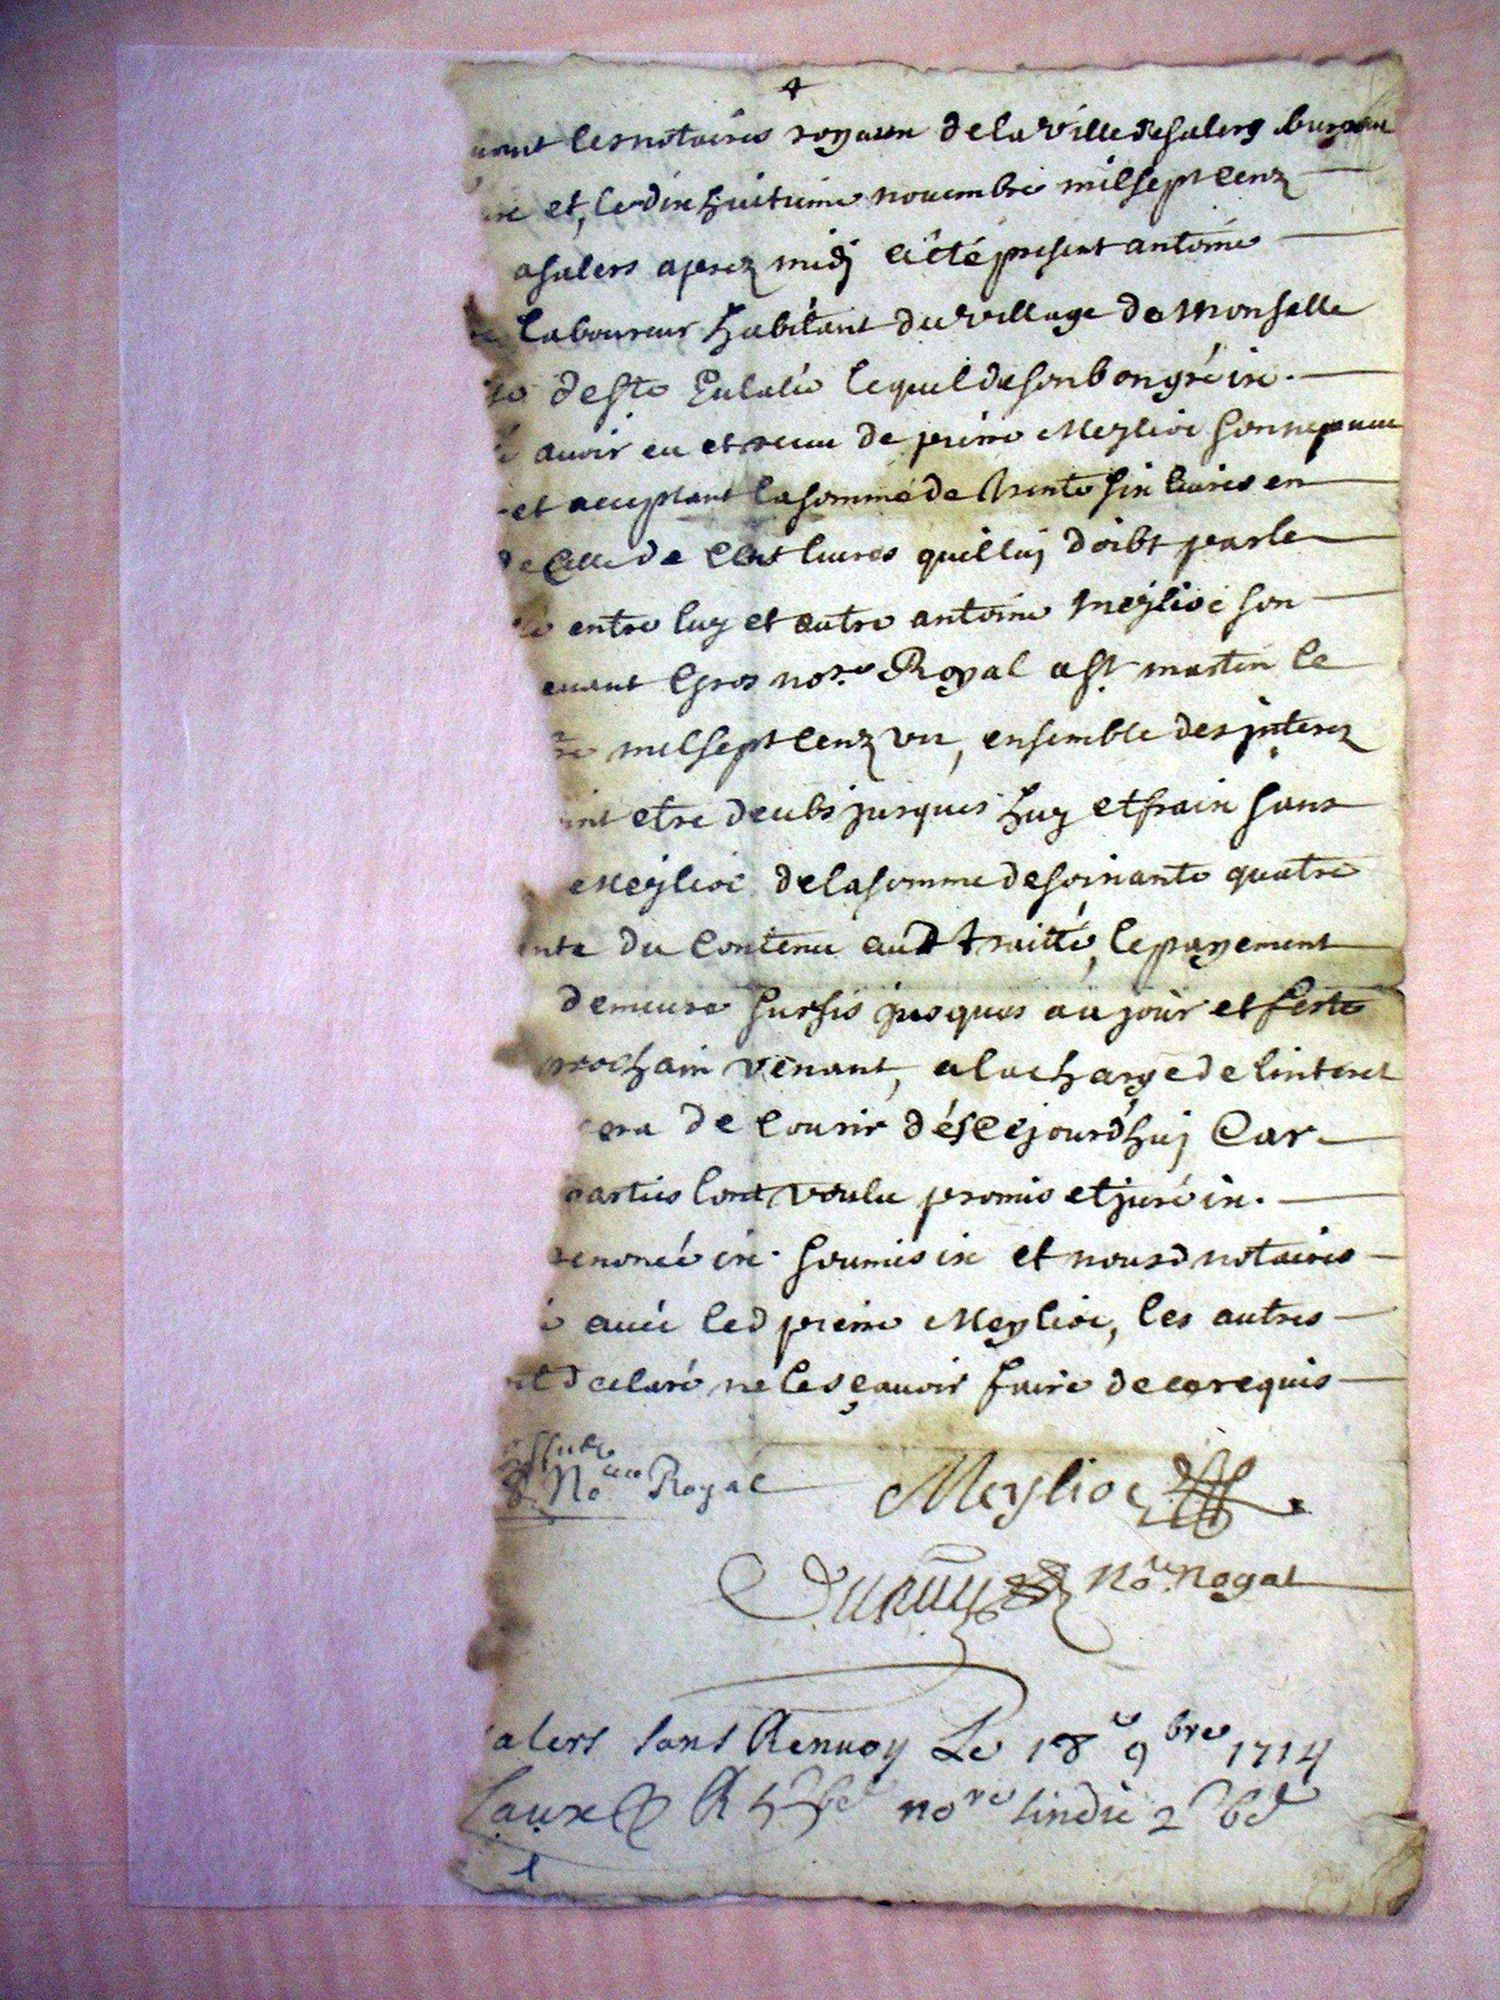 uant les notaires royaux de la ville de salers
et, le dix huitieme novembre mil sept cenz
a salers aprez midj a été present antoine
laboureur habitant du village de Monselle
de ste Eulalie lequel de son bon gré ixe.
avoir eu et receu de pierre Meylioc son
et acceptant la somme de trente six livres en
de celle de cent livres quil luj doibt par le
entre luy et autre antoine Meylioc son
evant Gros nore Royal a st martin le
mil sept cenz un, ensemble des jnterez
etre deubs jusques huy et fraix sans
Meylioc de la somme de soixante quatre
du contenu aud traitté, le payement
demeure sursis jusques au jour et feste
prochain venant, a la charge de linteret
era de courir dés ce jourdhuj Car
parties lont voulu promis et juré ixe.
renoncé ixe. soumis ixe et nousd notaires
avec led pierre Meylioc, les autres
declaré ne le sçavoir faire de ce requis
Nore Royal Meylioc
Nore Royal
alers sans Renvoy Le 18e 9bre 1714
R nore sindic